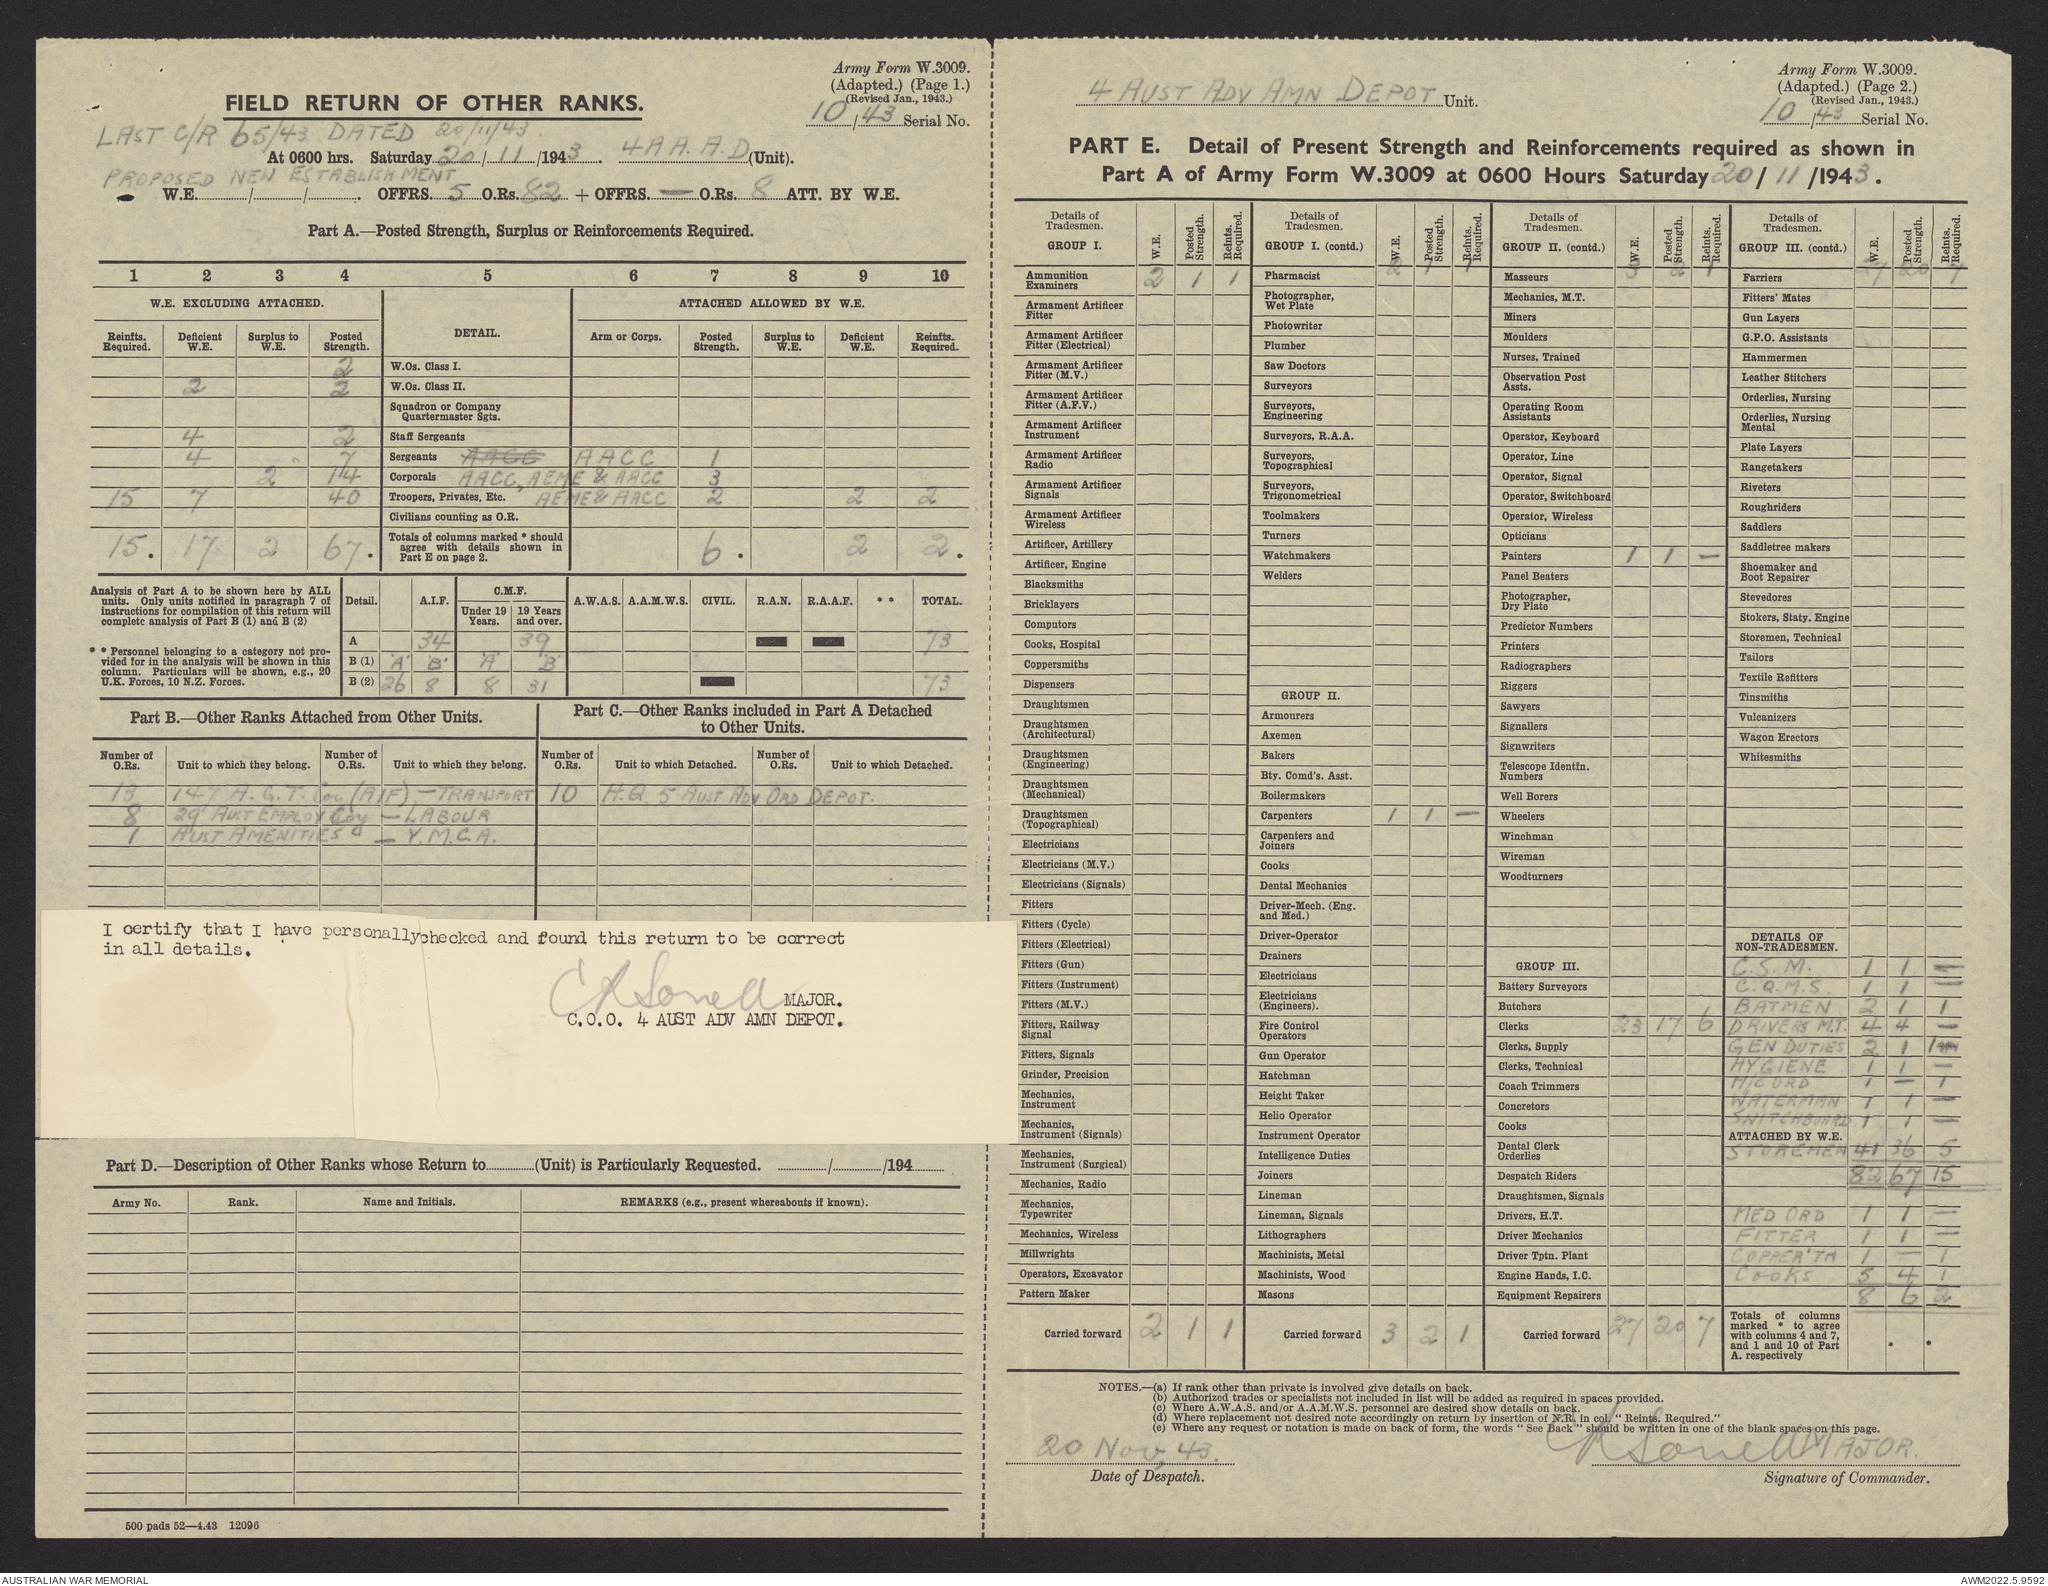 Army Form W.3009.
(Adapted.) (Page 1.)
(Revised Jan., 1943.)
10/43 Serial No.
FIELD RETURN OF OTHER RANKS.
LAST C/R 65/43 DATED 20/11/43.
At 0600 hrs. Saturday 20/11/1943. 4 A A. A. D (Unit).
PROPOSED NEW ESTABLISHMENT
W.E. / / . OFFRS. 5 O.Rs. 82 + OFFRS. — O.Rs. 8 ATT. BY W.E.
Part A.—Posted Strength, Surplus or Reinforcements Required.
1 2 3 4 5 6 7 8 9 10
W.E. EXCLUDING ATTACHED. DETAIL. ATTACHED ALLOWED BY W.E.
Reinfts. Required. Deficient W.E. Surplus to W.E. Posted Strength. Arm or Corps. Posted Strength. Surplus to W.E. Deficient W.E. Reinfts. Required.
2 W.Os. Class I.
2 2 W.Os. Class II.
Squadron or Company Quartermaster Sgts.
4 2 Staff Sergeants
4 7 Sergeants AACC AACC 1
2 14 Corporals AACC, AEME & AACC 3
15 7 40 Troopers, Privates, Etc. AEME & AACC 2 2 2
Civilians counting as O.R.
15. 17 2 67. Totals of columns marked * should agree with details shown in Part E on page 2. 6. 2 2.
Analysis of Part A to be shown here by ALL units. Only units notified in paragraph 7 of instructions for compilation of this return will complete analysis of Part B (1) and B (2)
* * Personnel belonging to a category not provided for in the analysis will be shown in this column. Particulars will be shown, e.g., 20 U.K. Forces, 10 N.Z. Forces.
Detail. A.I.F. C.M.F. Under 19 Years. 19 Years and over. A.W.A.S. A.A.M.W.S. CIVIL. R.A.N. R.A.A.F. * * TOTAL.
A 34 39 73
B (1) 'A' 'B' 'A' 'B'
B (2) 26 8 8 31 73
Part B.—Other Ranks Attached from Other Units.
Part C.—Other Ranks included in Part A Detached to Other Units.
Number of O.Rs. Unit to which they belong. Number of O.Rs. Unit to which they belong. Number of O.Rs. Unit to which Detached. Number of O.Rs. Unit to which Detached.
13 147 A. G. T. Coy (AIF) — TRANSPORT 10 H.Q. 5 AUST ADV ORD DEPOT.
8 29 AUST EMPLOY Coy — LABOUR
1 AUST AMENITIES — Y.M.C.A.
I certify that I have personally checked and found this return to be correct
in all details.
MAJOR.
C.O.O. 4 AUST ADV AMN DEPOT.
Part D.—Description of Other Ranks whose Return to (Unit) is Particularly Requested. / /194
Army No. Rank. Name and Initials. REMARKS (e.g., present whereabouts if known).
500 pads 52—4.43 12096
4 AUST ADV AMN DEPOT Unit.
Army Form W.3009.
(Adapted.) (Page 2.)
(Revised Jan., 1943.)
10/43 Serial No.
PART E. Detail of Present Strength and Reinforcements required as shown in
Part A of Army Form W.3009 at 0600 Hours Saturday 20/11/1943.
Details of Tradesmen. GROUP I. W.E. Posted Strength. Reints. Required.
Ammunition Examiners 2 1 1
Armament Artificer Fitter
Armament Artificer Fitter (Electrical)
Armament Artificer Fitter (M.V.)
Armament Artificer Fitter (A.F.V.)
Armament Artificer Instrument
Armament Artificer Radio
Armament Artificer Signals
Armament Artificer Wireless
Artificer, Artillery
Artificer, Engine
Blacksmiths
Bricklayers
Computors
Cooks, Hospital
Coppersmiths
Dispensers
Draughtsmen
Draughtsmen (Architectural)
Draughtsmen (Engineering)
Draughtsmen (Mechanical)
Draughtsmen (Topographical)
Electricians
Electricians (M.V.)
Electricians (Signals)
Fitters
Fitters (Cycle)
Fitters (Electrical)
Fitters (Gun)
Fitters (Instrument)
Fitters (M.V.)
Fitters, Railway Signal
Fitters, Signals
Grinder, Precision
Mechanics, Instrument
Mechanics, Instrument (Signals)
Mechanics, Instrument (Surgical)
Mechanics, Radio
Mechanics, Typewriter
Mechanics, Wireless
Millwrights
Operators, Excavator
Pattern Maker
Carried forward 2 1 1
Details of Tradesmen. GROUP I. (contd.) W.E. Posted Strength. Reints. Required.
2 1 1
Pharmacist
Photographer, Wet Plate
Photowriter
Plumber
Saw Doctors
Surveyors
Surveyors, Engineering
Surveyors, R.A.A.
Surveyors, Topographical
Surveyors, Trigonometrical
Toolmakers
Turners
Watchmakers
Welders
GROUP II.
Armourers
Axemen
Bakers
Bty. Comd's. Asst.
Boilermakers
Carpenters 1 1 —
Carpenters and Joiners
Cooks
Dental Mechanics
Driver-Mech. (Eng. and Med.)
Driver-Operator
Drainers
Electricians
Electricians (Engineers).
Fire Control Operators
Gun Operator
Hatchman
Height Taker
Helio Operator
Instrument Operator
Intelligence Duties
Joiners
Lineman
Lineman, Signals
Lithographers
Machinists, Metal
Machinists, Wood
Masons
Carried forward 3 2 1
Details of Tradesmen. GROUP II. (contd.) W.E. Posted Strength. Reints. Required.
3 2 1
Masseurs
Mechanics, M.T.
Miners
Moulders
Nurses, Trained
Observation Post Assts.
Operating Room Assistants
Operator, Keyboard
Operator, Line
Operator, Signal
Operator, Switchboard
Operator, Wireless
Opticians
Painters 1 1 —
Panel Beaters
Photographer, Dry Plate
Predictor Numbers
Printers
Radiographers
Riggers
Sawyers
Signallers
Signwriters
Telescope Identfn. Numbers
Well Borers
Wheelers
Winchman
Wireman
Woodturners
GROUP III.
Battery Surveyors
Butchers
Clerks 23 17 6
Clerks, Supply
Clerks, Technical
Coach Trimmers
Concretors
Cooks
Dental Clerk Orderlies
Despatch Riders
Draughtsmen, Signals
Drivers, H.T.
Driver Mechanics
Driver Tptn. Plant
Engine Hands, I.C.
Equipment Repairers
Carried forward 27 20 7
Details of Tradesmen. GROUP III. (contd.) W.E. Posted Strength. Reints. Required.
27 20 7
Farriers
Fitters' Mates
Gun Layers
G.P.O. Assistants
Hammermen
Leather Stitchers
Orderlies, Nursing
Orderlies, Nursing Mental
Plate Layers
Rangetakers
Riveters
Roughriders
Saddlers
Saddletree makers
Shoemaker and Boot Repairer
Stevedores
Stokers, Staty. Engine
Storemen, Technical
Tailors
Textile Refitters
Tinsmiths
Vulcanizers
Wagon Erectors
Whitesmiths
DETAILS OF NON-TRADESMEN.
C.S.M. 1 1 —
C.Q.M.S. 1 1 —
BATMEN 2 1 1
DRIVERS M.T. 4 4 —
GEN DUTIES 2 1 1
HYGIENE 1 1 —
M/C ORD 1 — 1
WATERMAN 1 1 —
SWITCHBOARD 1 1 —
ATTACHED BY W.E.
STOREMEN 41 36 5
82 67 15
MED ORD 1 1 —
FITTER 1 1 —
COPPER'TH 1 — 1
COOKS 5 4 1
8 6 2
Totals of columns marked * to agree with columns 4 and 7, and 1 and 10 of Part A. respectively
NOTES.—(a) If rank other than private is involved give details on back.
(b) Authorized trades or specialists not included in list will be added as required in spaces provided.
(c) Where A.W.A.S. and/or A.A.M.W.S. personnel are desired show details on back.
(d) Where replacement not desired note accordingly on return by insertion of N.R. in col. "Reints. Required."
(e) Where any request or notation is made on back of form, the words "See Back" should be written in one of the blank spaces on this page.
20 Nov, 43. MAJOR.
Date of Despatch. Signature of Commander.
AUSTRALIAN WAR MEMORIAL AWM2022.5.9592